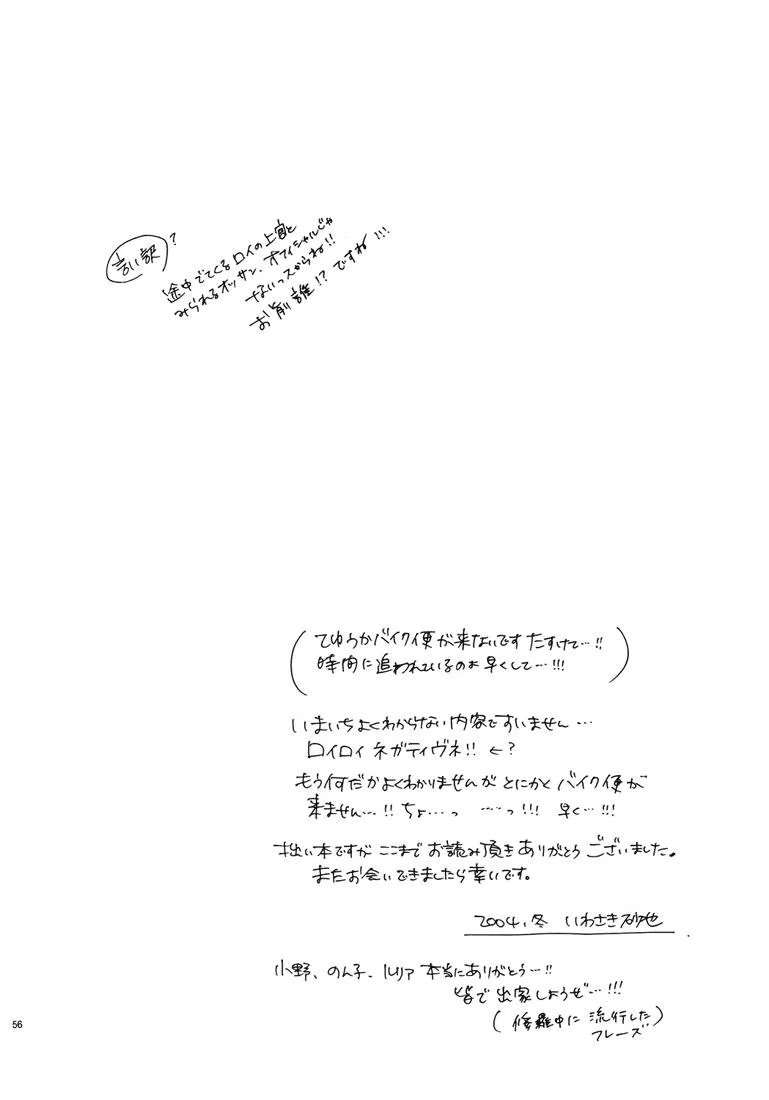 言い訳?
途中ででてくるロイの上官と
みられるオッサン、オフィシャルじゃ
ないっスからね!!
お前誰!?ですね!!!
(てゆうかバイク便が来ないです たすけて…!!
時間に追われているのよ 早くして…!!!)
いまいちよくわからない内容ですいません…
ロイロイ ネガティヴネ!! ←?
もう何だかよくわかりませんが とにかく バイク便が
来ません…!! ちょ…っ ……っ!!! 早く…!!!
拙い本ですが ここまで お読み頂き ありがとう ございました。
またお会いできましたら幸いです。
2004.冬 いわさき砂也
小野、のん子、ルリア 本当にありがとう…!!
皆で 出家しようぜ…!!!
(修羅中に 流行した
フレーズ)
56